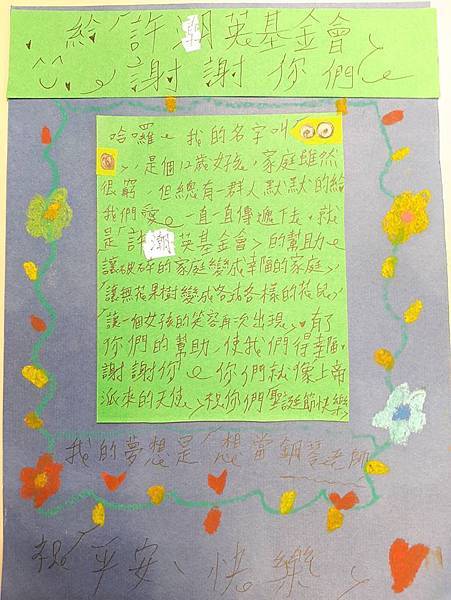 給「許潮英基金會」
謝謝你們
哈囉~我的名字叫「
」,是個12歲女孩,家庭雖然
很窮,但總有一群人默默的給
我們愛。一直一直傳遞下去,就
是「許潮英基金會」的幫助~
讓破碎的家庭變成幸福的家庭,
讓無花果樹變成各式各樣的花兒,
讓一個女孩的笑容再次出現,有了
你們的幫助,使我們得幸福,
謝謝你~你們就像上帝
派來的天使,祝你們聖誕節快樂
我的夢想是「想當鋼琴老師
祝平安、快樂